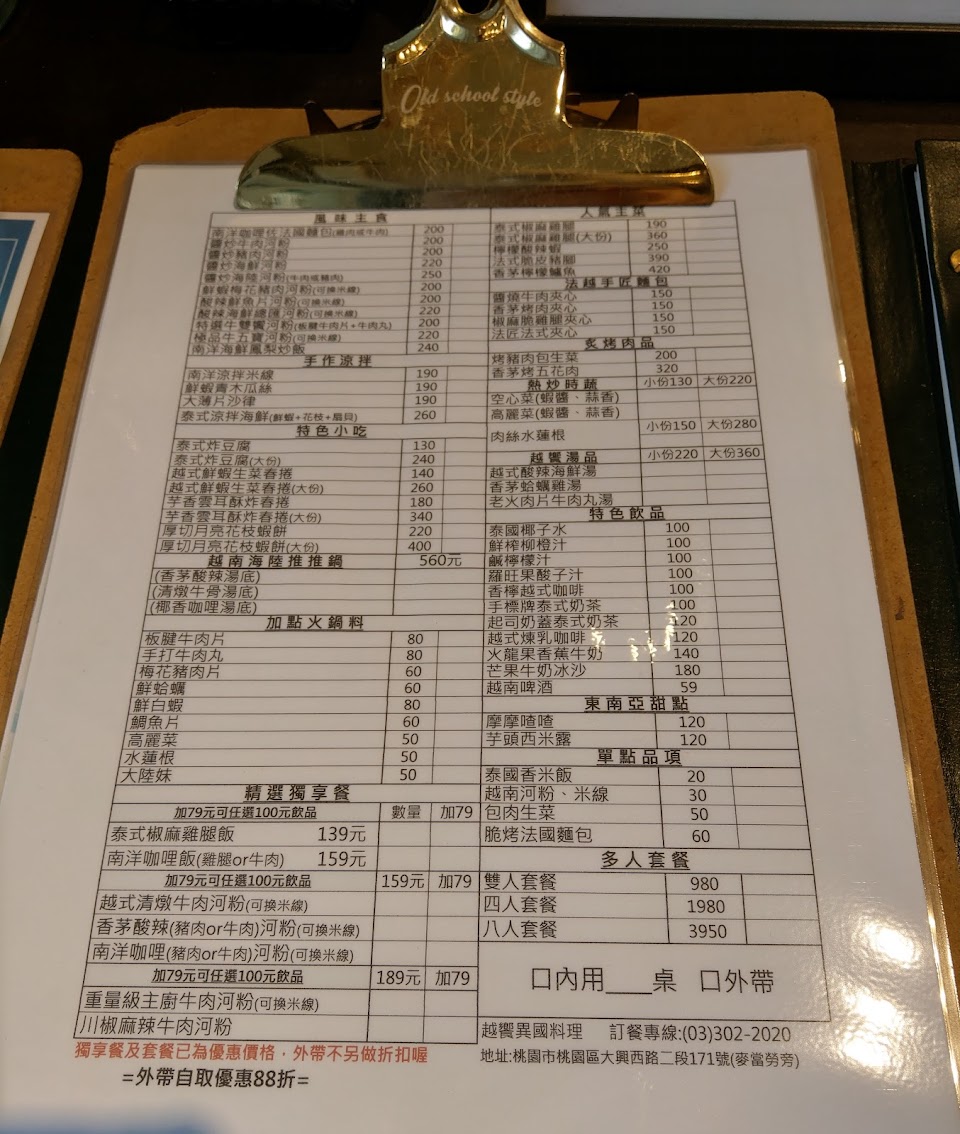 Old school style
風味主食
南洋咖哩佐法國麵包(雞肉或牛肉) 200
醬炒牛肉河粉 200
醬炒豬肉河粉 200
醬炒海鮮河粉 220
醬炒海陸河粉(牛肉或豬肉) 250
鮮蝦梅花豬肉河粉(可換米線) 200
酸辣鮮魚片河粉(可換米線) 200
酸辣海鮮總匯河粉(可換米線) 220
特選牛雙饗河粉(板腱牛肉片+牛肉丸) 200
極品牛五寶河粉(可換米線) 220
南洋海鮮鳳梨炒飯 240
手作涼拌
南洋涼拌米線 190
鮮蝦青木瓜絲 190
大薄片沙律 190
泰式涼拌海鮮(鮮蝦+花枝+扇貝) 260
特色小吃
泰式炸豆腐 130
泰式炸豆腐(大份) 240
越式鮮蝦生菜春捲 140
越式鮮蝦生菜春捲(大份) 260
芋香雲耳酥炸春捲 180
芋香雲耳酥炸春捲(大份) 340
厚切月亮花枝蝦餅 220
厚切月亮花枝蝦餅(大份) 400
越南海陸推推鍋 560元
(香茅酸辣湯底)
(清燉牛骨湯底)
(椰香咖哩湯底)
加點火鍋料
板腱牛肉片 80
手打牛肉丸 80
梅花豬肉片 60
鮮蛤蠣 60
鮮白蝦 80
鯛魚片 60
高麗菜 50
水蓮根 50
大陸妹 50
精選獨享餐
加79元可任選100元飲品 數量 加79
泰式椒麻雞腿飯 139元
南洋咖哩飯(雞腿or牛肉) 159元
加79元可任選100元飲品 159元 加79
越式清燉牛肉河粉(可換米線)
香茅酸辣(豬肉or牛肉)河粉(可換米線)
南洋咖哩(豬肉or牛肉)河粉(可換米線)
加79元可任選100元飲品 189元 加79
重量級主廚牛肉河粉(可換米線)
川椒麻辣牛肉河粉
獨享餐及套餐已為優惠價格，外帶不另做折扣喔
=外帶自取優惠88折=
人氣主菜
泰式椒麻雞腿 190
泰式椒麻雞腿(大份) 360
檸檬酸辣蝦 250
法式脆皮豬腳 390
香茅檸檬鱸魚 420
法越手工匠麵包
醬燒牛肉夾心 150
香茅烤肉夾心 150
椒麻脆雞腿夾心 150
法匠法式夾心 150
炙烤肉品
烤豬肉包生菜 200
香茅烤五花肉 320
熱炒時蔬 小份130 大份220
空心菜(蝦醬、蒜香)
高麗菜(蝦醬、蒜香)
肉絲水蓮根 小份150 大份280
越饗湯品 小份220 大份360
越式酸辣海鮮湯
香茅蛤蠣雞湯
老火肉片牛肉丸湯
特色飲品
泰國椰子水 100
鮮榨柳橙汁 100
鹹檸檬汁 100
羅旺果酸子汁 100
香檸越式咖啡 100
手標牌泰式奶茶 100
起司奶蓋泰式奶茶 120
越式煉乳咖啡 120
火龍果香蕉牛奶 140
芒果牛奶冰沙 180
越南啤酒 59
東南亞甜點
摩摩喳喳 120
芋頭西米露 120
單點品項
泰國香米飯 20
越南河粉、米線 30
包肉生菜 50
脆烤法國麵包 60
多人套餐
雙人套餐 980
四人套餐 1980
八人套餐 3950
口內用____桌 口外帶
越饗異國料理 訂餐專線:(03)302-2020
地址:桃園市桃園區大興西路二段171號(麥當勞旁)